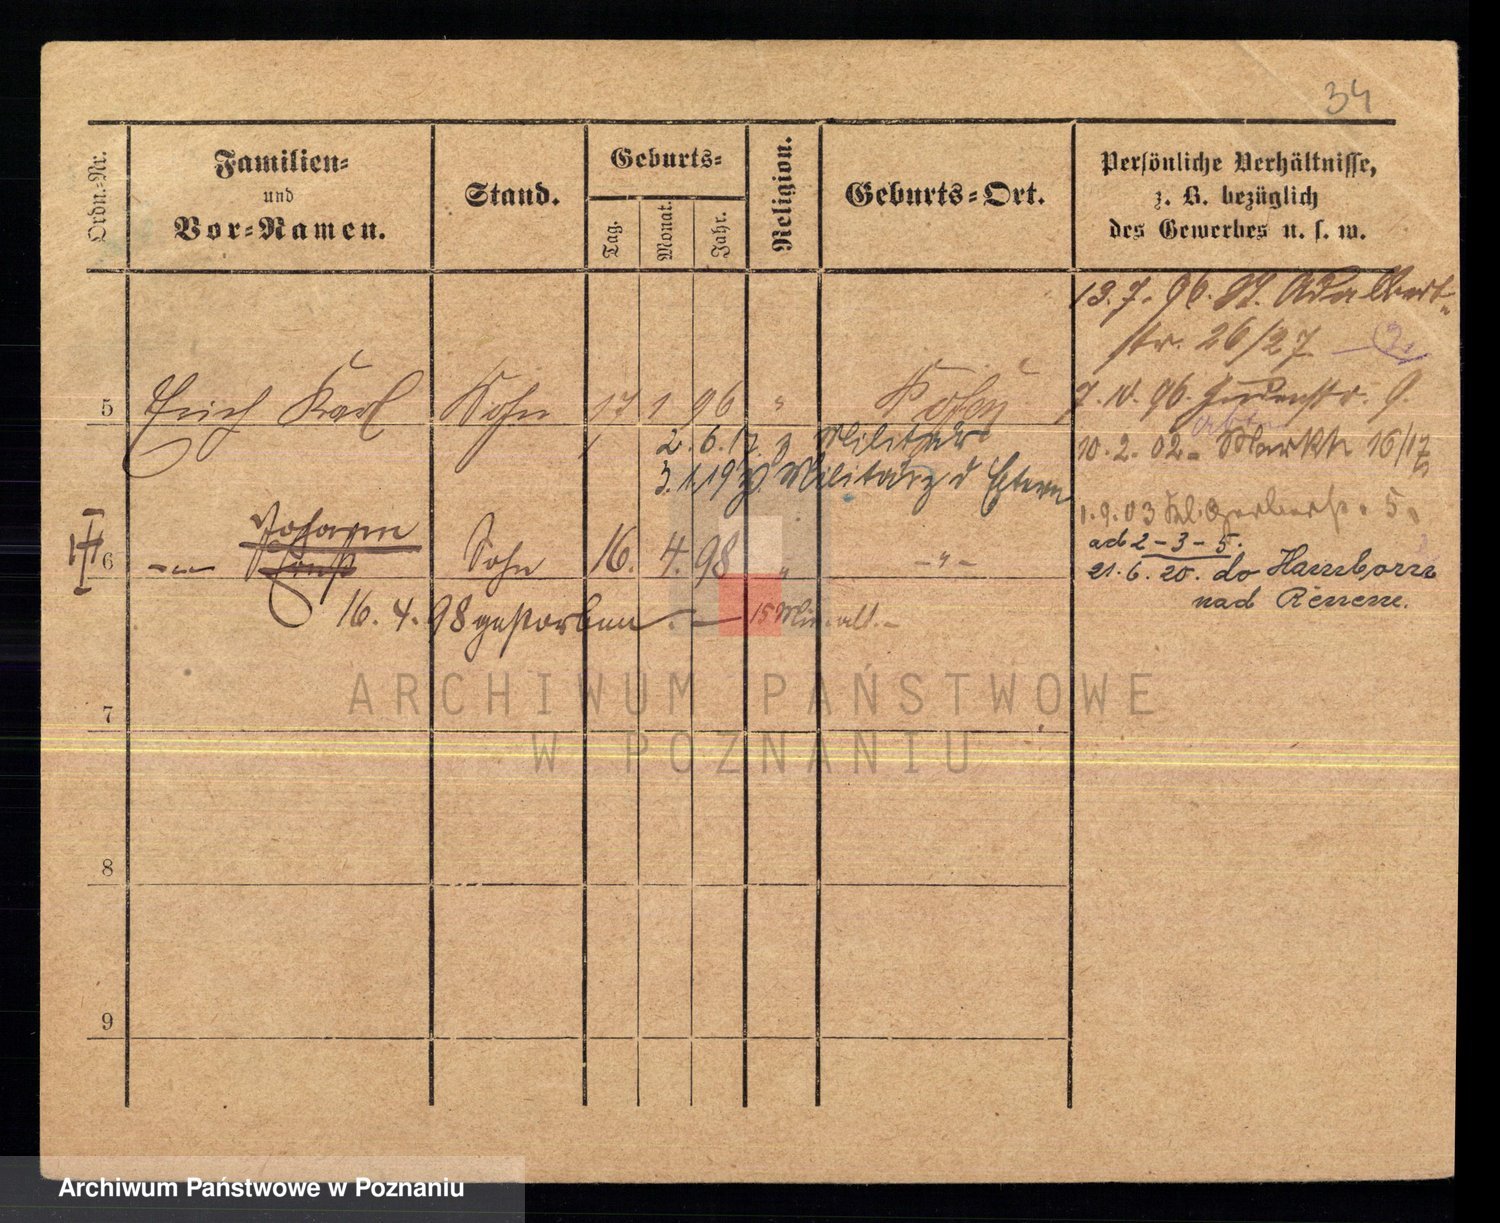 34
Ordn.-Nr.
Familien-
und
Vor-Namen.
Stand.
Geburts-
Tag.
Monat.
Jahr.
Religion.
Geburts-Ort.
Persönliche Verhältnisse,
z. B. bezüglich
des Gewerbes u. s. w.
13.7.96. St. Adalbert-
str. 26/27
5 Erich Karl Sohn 17 1 96 " Posen
2.6.17. z Militär
3.1.19 v. Militär z d Eltern
7.10.96. Judenstr. 9.
10.2.02 - Markt 16/17
1.9.03 Kl. Gerberstr. 5.
ad 2-3-5.
21.6.20. do Hamborn
nad Renem.
Johann
6 Ernst Sohn 16. 4. 98 " -"-
16.4.98 gestorben. — 15 Min. alt. -
7
8
9
ARCHIWUM PAŃSTWOWE
W POZNANIU
Archiwum Państwowe w Poznaniu